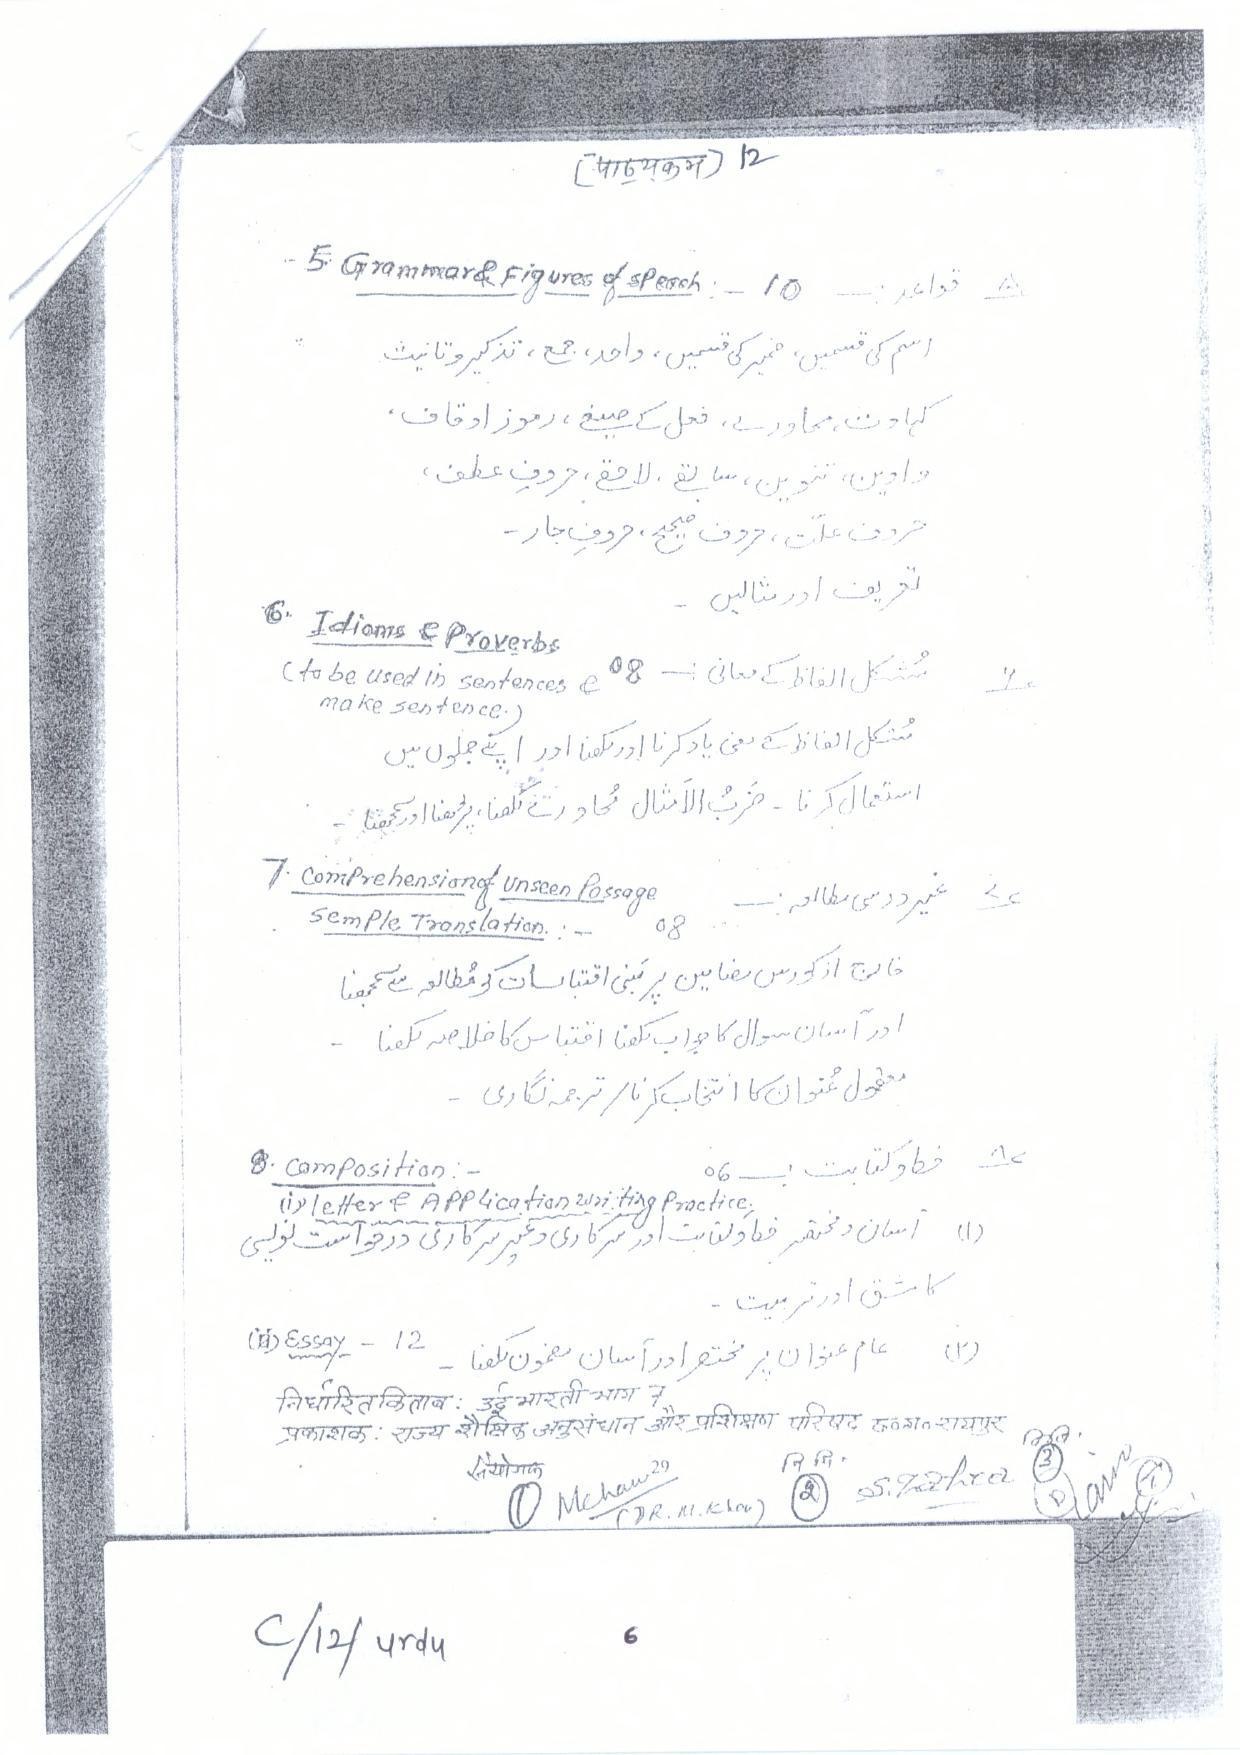 (पाठ्यक्रम) 12
5. Grammar & Figures of speech :- 10 قواعد :—
اسم کی قسمیں، ضمیر کی قسمیں، واحد، جمع، تذکیر و تانیث
کہاوت، محاورے، فعل کے صیغے، رموز اوقاف،
واوین، تنوین، سابقے، لاحقے، حروفِ عطف،
حروف علّت، حروف صحیح، حروفِ جار۔
تعریف اور مثالیں ۔
6. Idioms & Proverbs
(to be used in sentences & 08 مُشکل الفاظ کے معانی :—
make sentence.)
مُشکل الفاظ کے معنی یاد کرنا اور لکھنا اور اپنے جملوں میں
استعمال کرنا ۔ ضَربُ الاَمثال مُحاورے لکھنا، پڑھنا اور سمجھنا ۔
7. Comprehension of unseen Passage غیر درسی مطالعہ :—
Semple Translation. :- 08
خارج از کورس مضامین پر مَبنی اقتباسات کو مُطالعہ سے سمجھنا
اور آسان سوال کا جواب لکھنا اقتباس کا خلاصہ لکھنا ۔
معقول عُنوان کا انتخاب کرنا / ترجمہ نگاری ۔
8. Composition :- 06 خط و کتابت :—
(i) letter & Application writing Practice.
(۱) آسان و مختصر خط و کتابت اور سرکاری و غیر سرکاری درخواست نویسی
کا مشق اور تربیت ۔
(ii) Essay - 12 (۲) عام عنوان پر مختصر اور آسان مضمون لکھنا ۔
निर्धारित किताब : उर्दू भारती भाग 7
प्रकाशक : राज्य शैक्षिक अनुसंधान और प्रशिक्षण परिषद छ०ग० रायपुर
संयोजक
① (DR. M. Khan) ② S. Zahra ③
C/12/ urdu
6